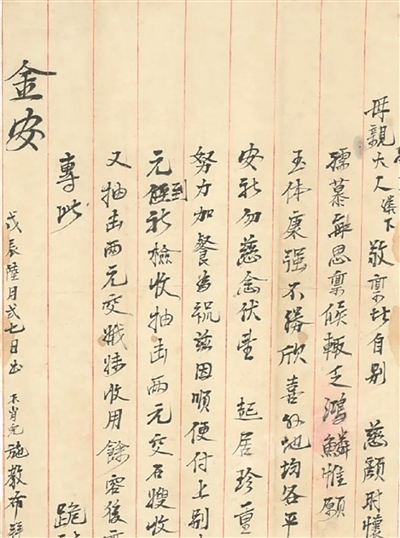 母親大人膝下敬稟者自別 慈顏時懷
孺慕每思稟候輒乏鴻鱗惟願
玉体康强不勝欣喜外地均各平
安祈勿慈念伏望 起居珍重
努力加餐為祝茲因順便付上別
元到祈檢收抽出兩元交石嫂收
又抽出兩元交 收用餘容後
專此
金安
戊辰陸月弍七日出 不肖兒施教布
跪